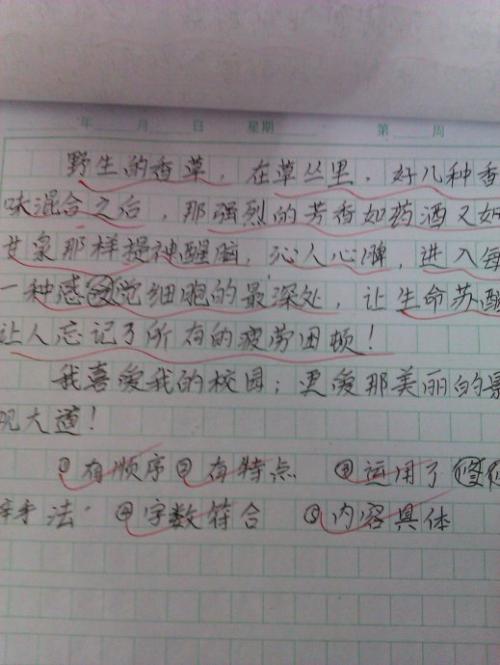 年 月 日 星期 第 周
野生的香草，在草丛里，好几种香
味混合之后，那强烈的芳香如药酒又如
甘泉那样提神醒脑，沁人心脾，进入每
一种感觉细胞的最深处，让生命苏醒
让人忘记了所有的疲劳困顿！
我喜爱我的校园；更爱那美丽的景
观大道！
①有顺序②有特点 运用了修
辞手法 ④字数符合 ⑤内容具体